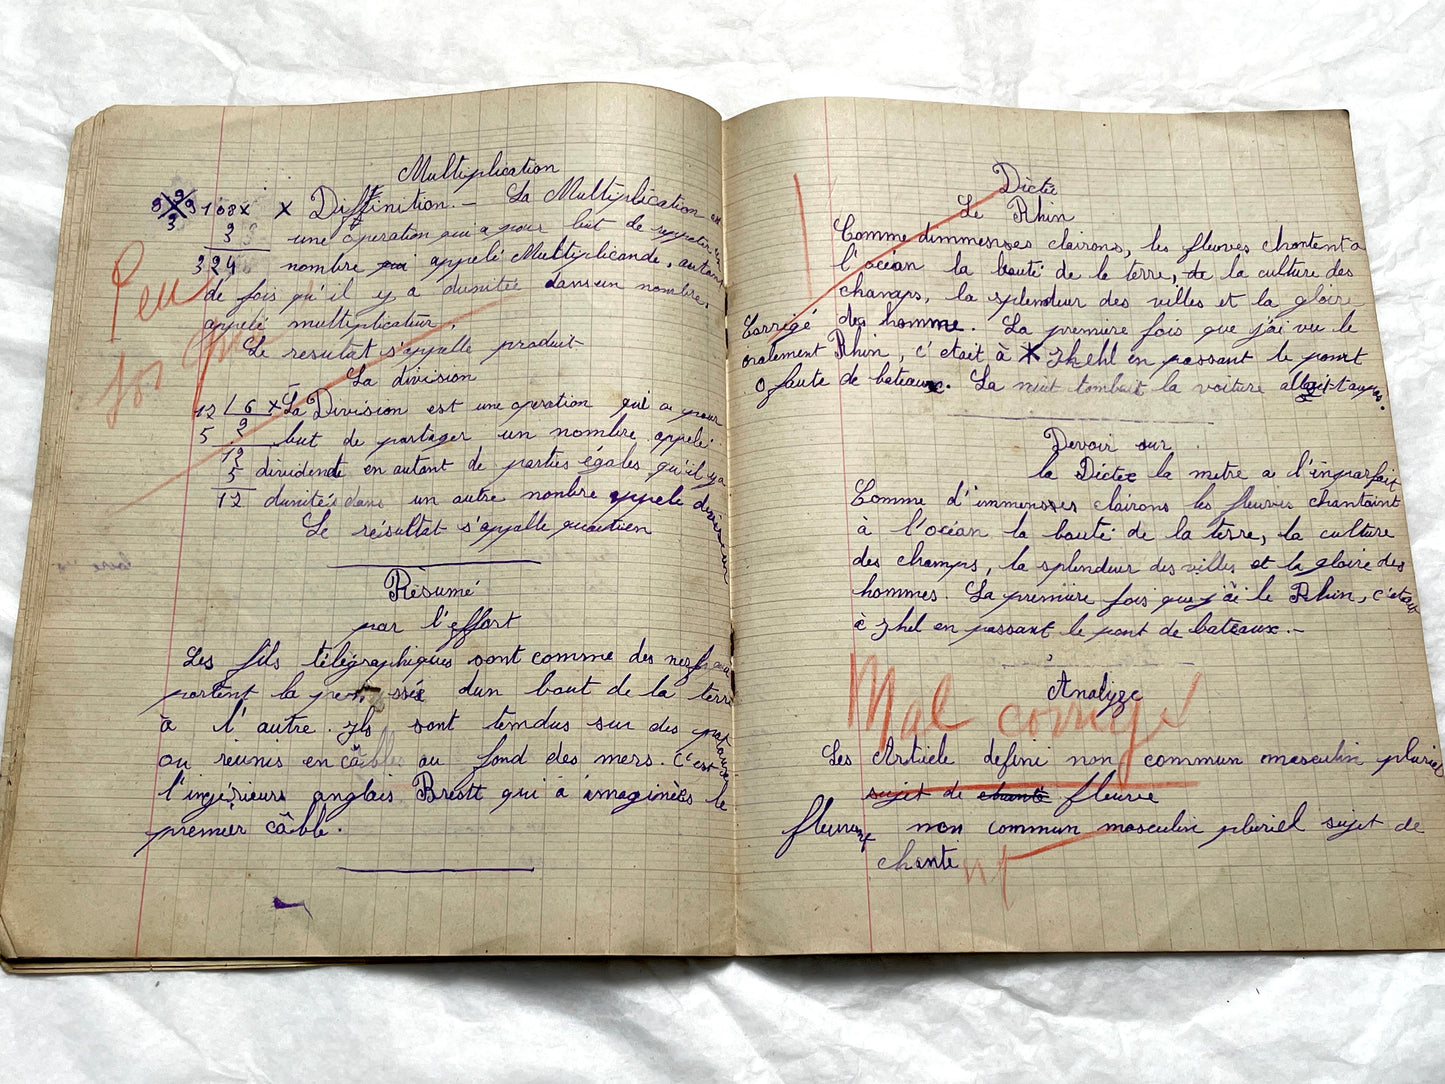 Multiplication
9 9 9 3 108 x x Diffinition. - La Multiplication est
3 une opération qui a pour but de reppéter un
324 nombre qui appelé Multiplicande, autant
de fois qu'il y a dunitée dans un nombre,
appelé multiplicateur.
Le resultat s'appelle produit
La division
12 6 x La Division est une operation qui a pour
5 2 but de partager un nombre, appelé
12 dividende en autant de parties égales qu'il y a
5
12 dunités dans un autre nonbre appelé diviseur
Le résultat s'appalle quotien
Peu
Résumé
par l'effort
Les fils télégraphiques sont comme des nerfs
portent la pensseé dun bout de la terre
à l'autre. Ils sont tendus sur des poteaux
ou reunis en câble au fond des mers. C'est
l'ingénieurs anglais Brett qui à imaginées le
premier câble.
Dictée
Le Rhin
Comme dimmensses clairons, les fleuves chantent a
l'océan la bauté de le terre, de la culture des
champs, la splendeur des villes et la gloire
Corrigé des homme. La première fois que j'ai vu le
oralement Rhin, c'etait à Khehl en passant le pont
9 faute de bateaux. La nuit tombait la voiture allait au pas.
Devoir sur
la Dictée la metre a l'inparfait
Comme d'immensses clairons les fleuves chantaint
à l'océan la bauté de la terre, la culture
des champs, la splendeur des villes et la gloire des
hommes. La première fois que j'ai le Rhin, c'etait
à Khel en passant le pont de bateaux. -
Analyze
Mal corrigé
Les Article defini non commun masculin pluriel
sujet de chanté fleuve
fleuve non commun masculin pluriel sujet de
chanté nt